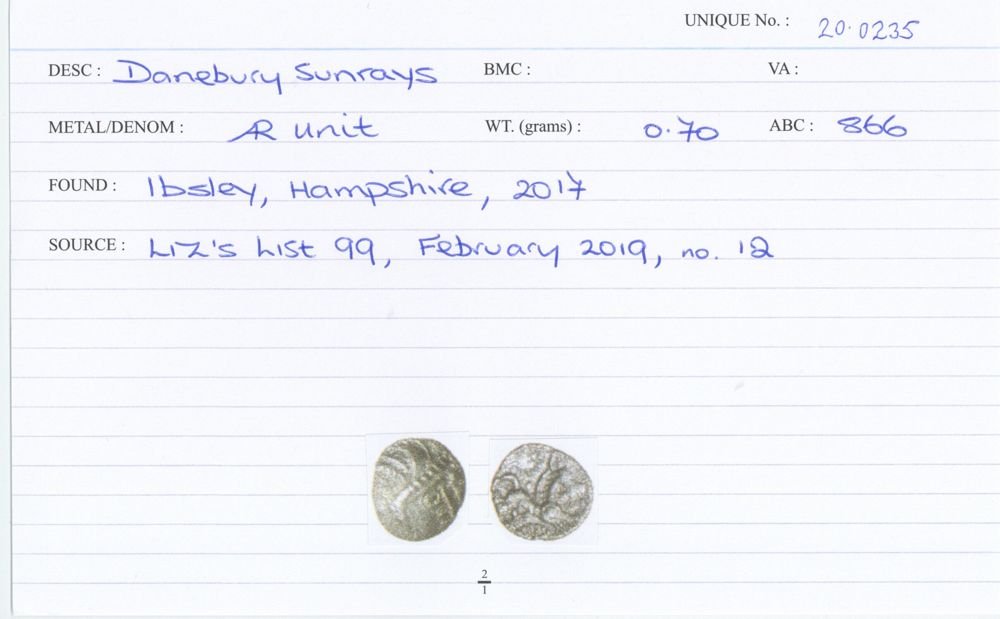 UNIQUE No. : 20.0235
DESC : Danebury Sunrays BMC : VA :
METAL/DENOM : AR unit WT. (grams) : 0.70 ABC : 866
FOUND : Ibsley, Hampshire, 2017
SOURCE : Liz's List 99, February 2019, no. 12
2
1